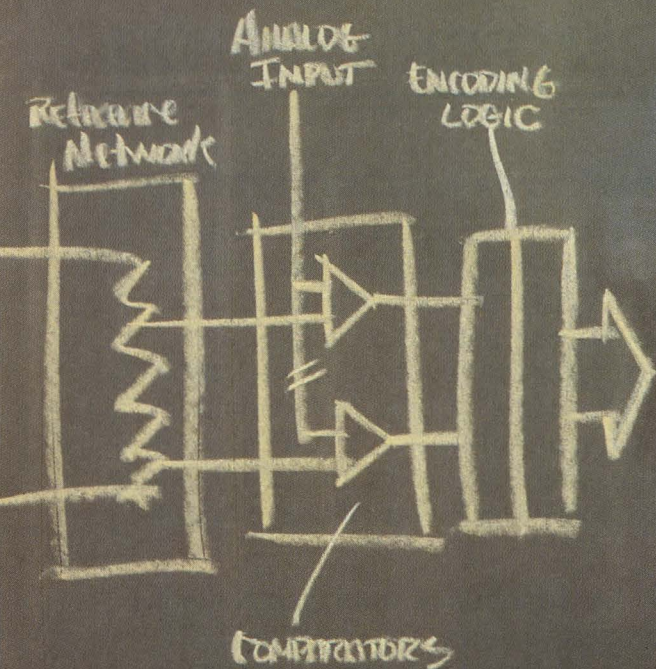 ANALOG
INPUT
ENCODING
LOGIC
Reference
Network
COMPARATORS